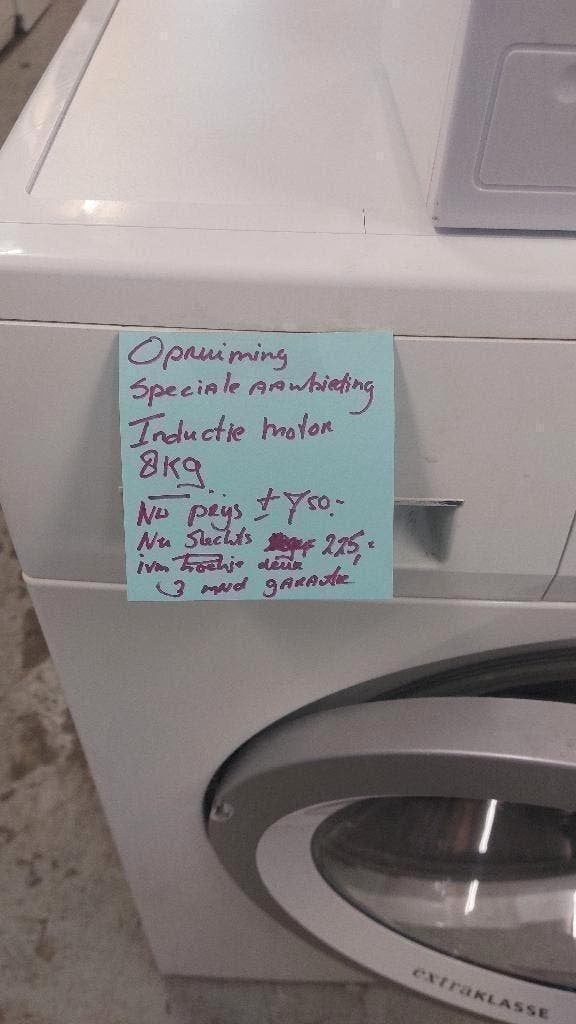 Opruiming
Speciale AAnbieding
Inductie motor
8KG
Nu prijs ± 750.-
Nu Slechts 225,-
ivm hoekje deuk
3 mnd gARAntie
extraKLASSE